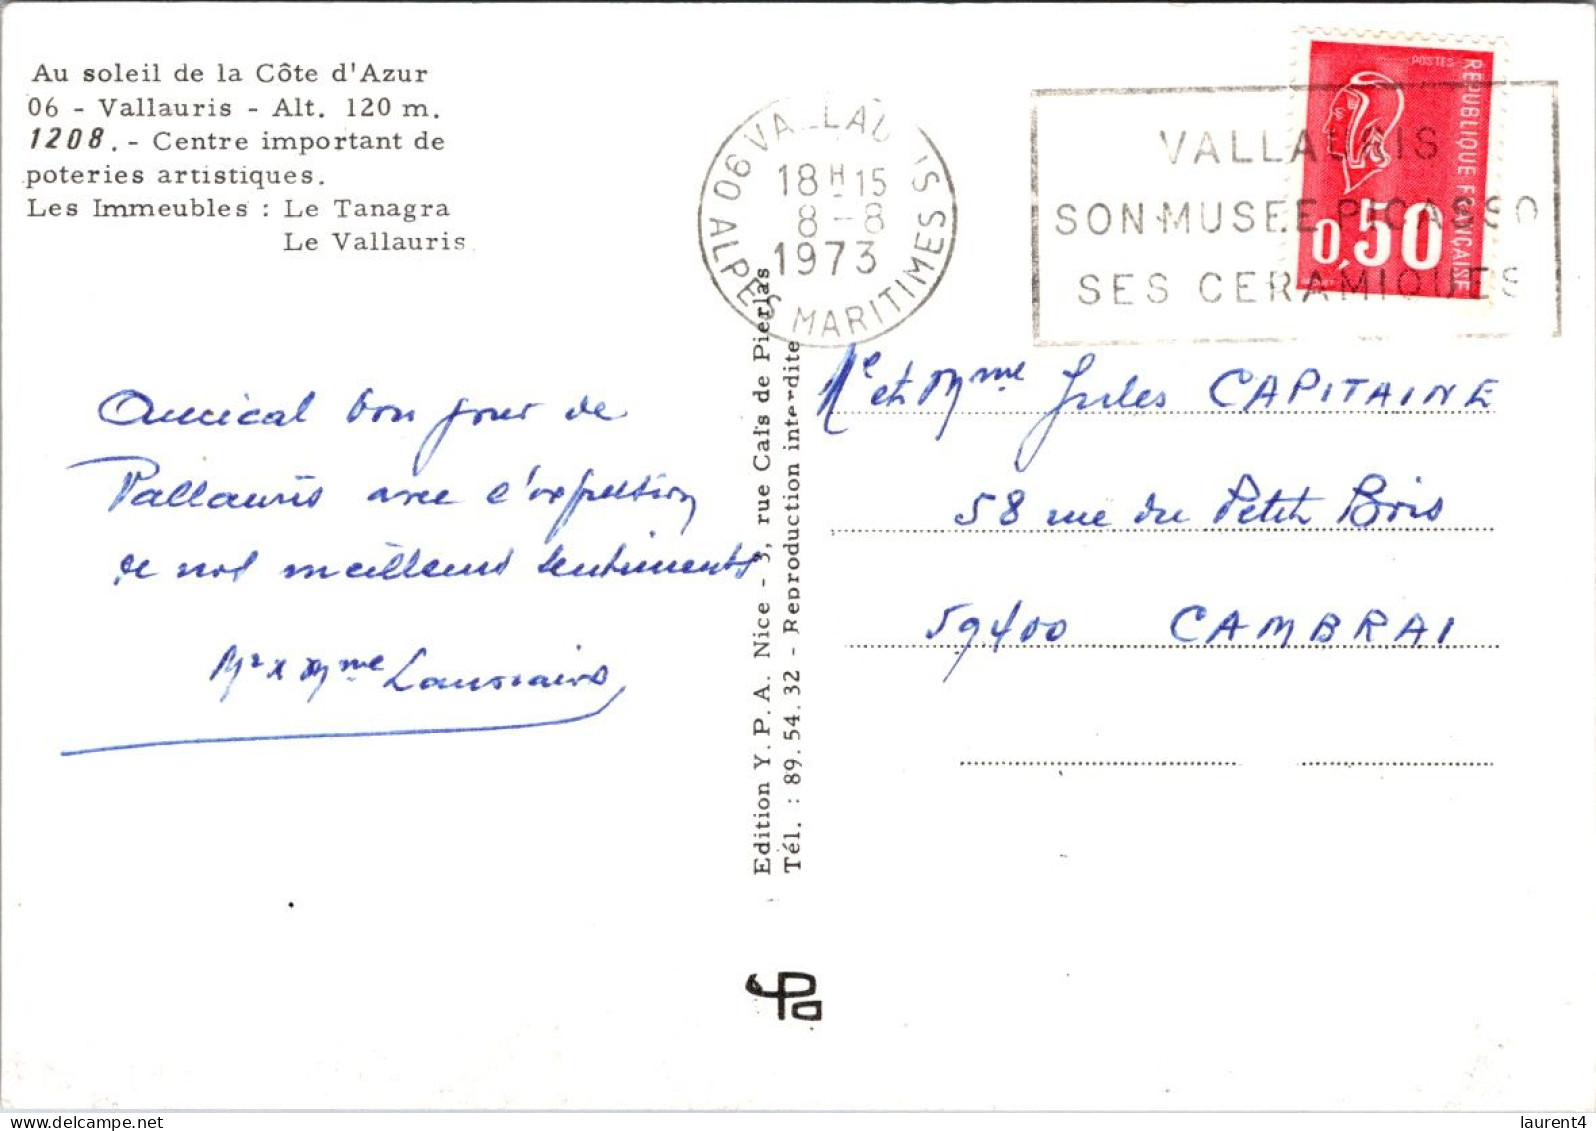 Au soleil de la Côte d'Azur
06 - Vallauris - Alt. 120 m.
1208. - Centre important de
poteries artistiques.
Les Immeubles : Le Tanagra
Le Vallauris
06 VALLAU IS
18 H 15
8 - 8
1973
ALPES MARITIMES
VALLAURIS
SON MUSEE PICASSO
SES CERAMIQUES
POSTES
REPUBLIQUE FRANÇAISE
0,50
Amical bon jour de
Vallauris avec l'expression
de nos meilleurs sentiments
Mr x Mme
Edition Y. P. A. Nice - 3, rue Caïs de Pierlas
Tél. : 89.54.32 - Reproduction interdite
Me et Mme Jules CAPITAINE
58 rue du Petit Bois
59400 CAMBRAI
yPa
laurent4